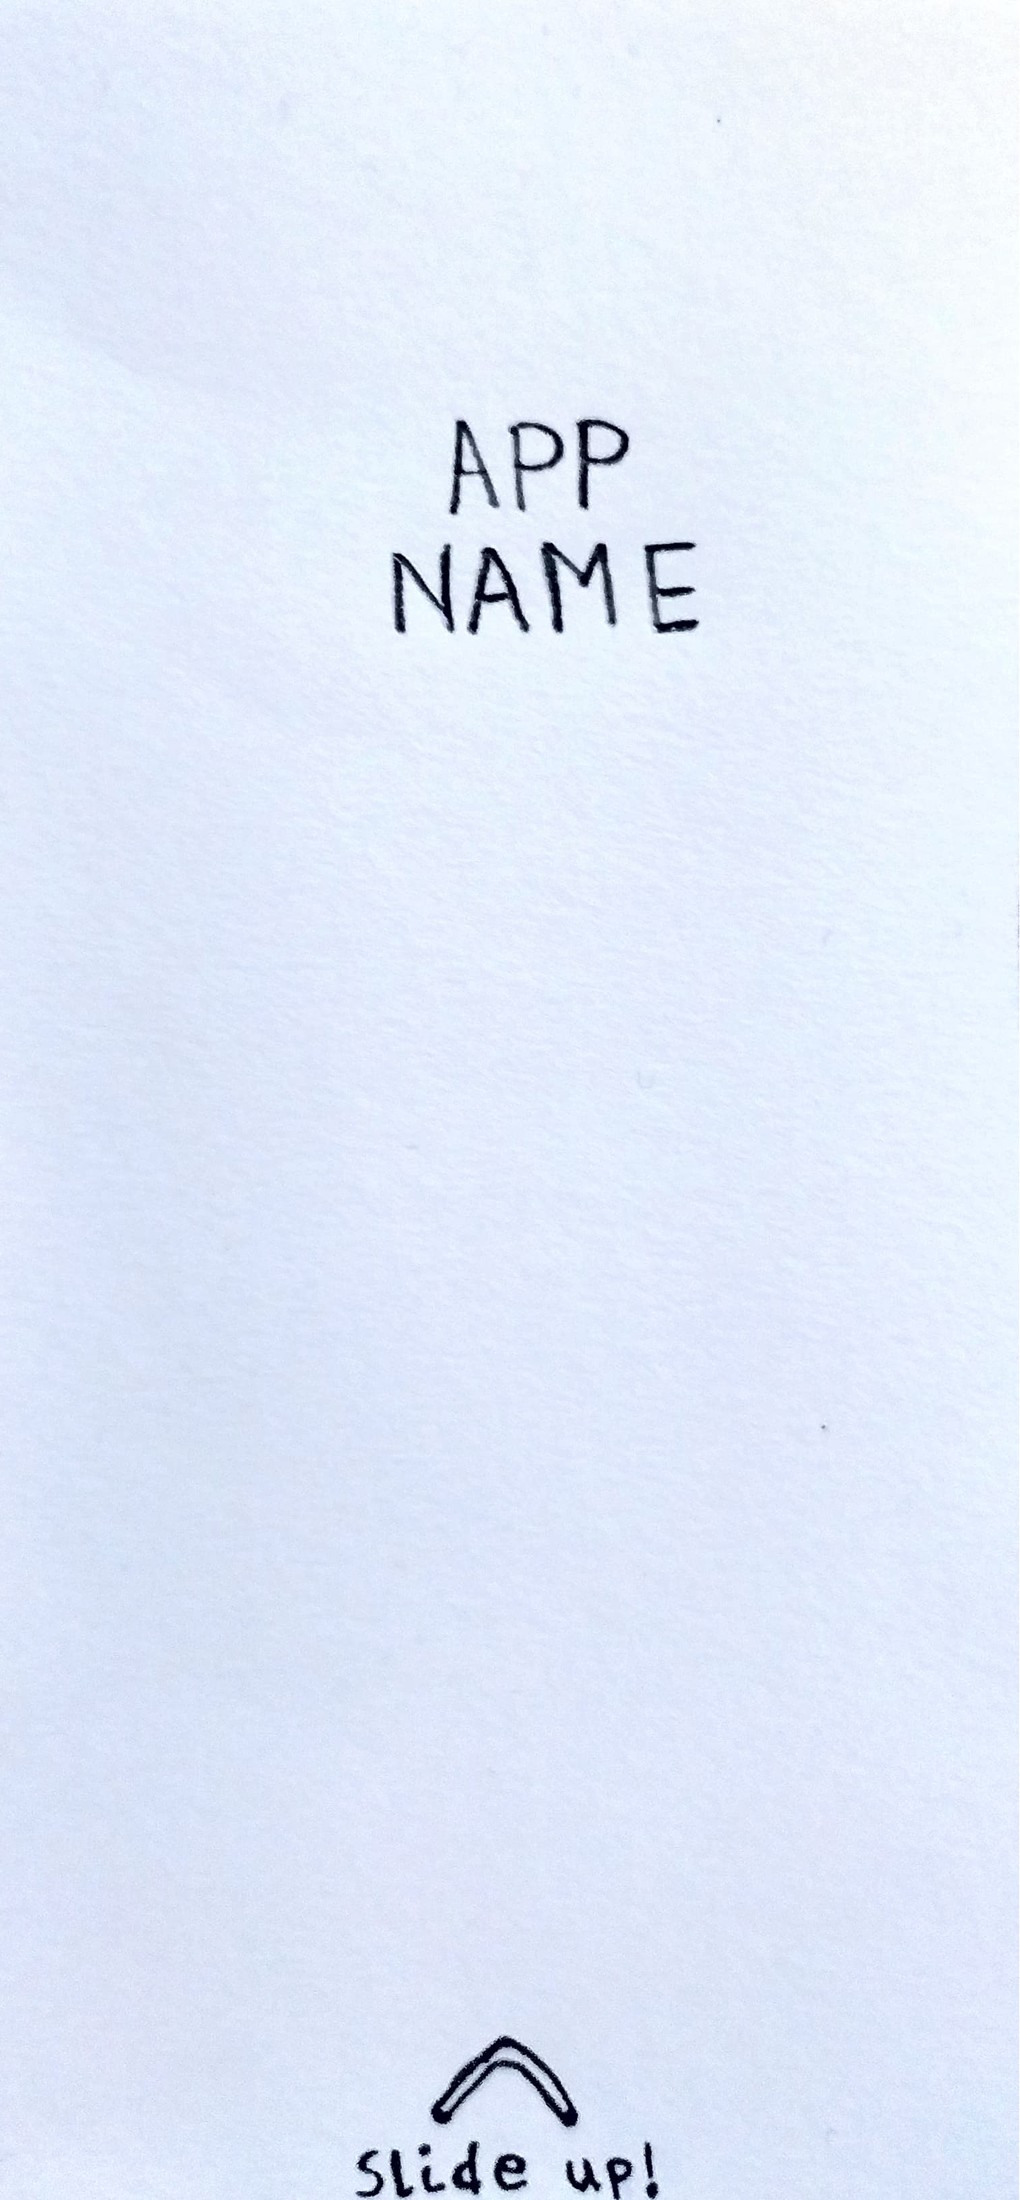 APP
NAME
Slide up!